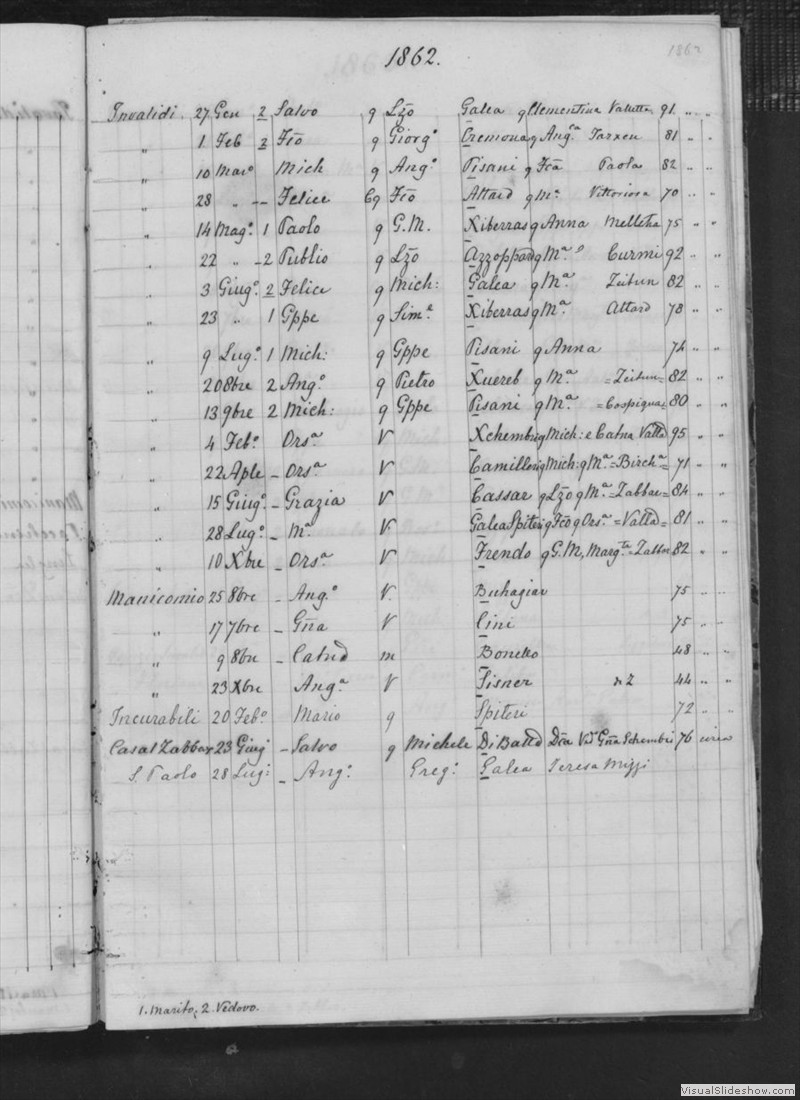 1862.
1862
Invalidi 27 Gen 2 Salvo q Lzo Galea q Clementina Valletta 91 " "
" 1 Feb 2 Fco q Giorgo Cremona q Anga Tarxen 81 " "
" 10 Maro Mich q Ango Pisani q Fca Paola 82 " "
" 28 " -- Felice Eq Fco Attard q Ma Vittoriosa 70 " "
" 14 Mago 1 Paolo q G.M. Xiberras q Anna Melleha 75 " "
" 22 " - 2 Publio q Lzo Azzoppard q Ma Curmi 92 " "
" 3 Giugo 2 Felice q Mich: Galea q Ma Zeitun 82 " "
" 23 " 1 Gppe q Sime Xiberras q Ma Attard 78 " "
" 9 Lugo 1 Mich: q Gppe Pisani q Anna 74 " "
" 20 8bre 2 Ango q Pietro Xuereb q Ma = Zeitun = 82 " "
" 13 9bre 2 Mich: q Gppe Pisani q Ma = Cospiqua = 80 " "
" 4 Febo Orsa V Xchembri q Mich: e Catna Valta 95 " "
" 22 Aple - Orsa V Camilleri q Mich: q Ma = Bircha = 71 " "
" 15 Giugo - Grazia V Cassar q Lzo q Ma = Zabbar = 84 " "
" 28 Lugo - Ma V Galea Spiteri q Fco q Orsa = Valta = 81 " "
" 10 Xbre - Orsa V Frendo q G.M, Margta = Zabbr 82 " "
Manicomio 25 8bre - Ango V. Buhagiar 75 " "
" 17 7bre - Gna V Cini 75 " "
" 9 8bre - Catnd m Bonello 48 " "
" 23 Xbre - Anga V Fisner n2 44 " "
Incurabili 20 Febo Mario q Spiteri 72 " "
Casal Zabbar 23 Giugo - Salvo q Michele Di Battd Dca Va Gna Schembri 76 circa
S. Paolo 28 Lugo - Ango Grego Galea Teresa Mizzi
1. Marito; 2. Vedovo.
VisualSlideshow.com